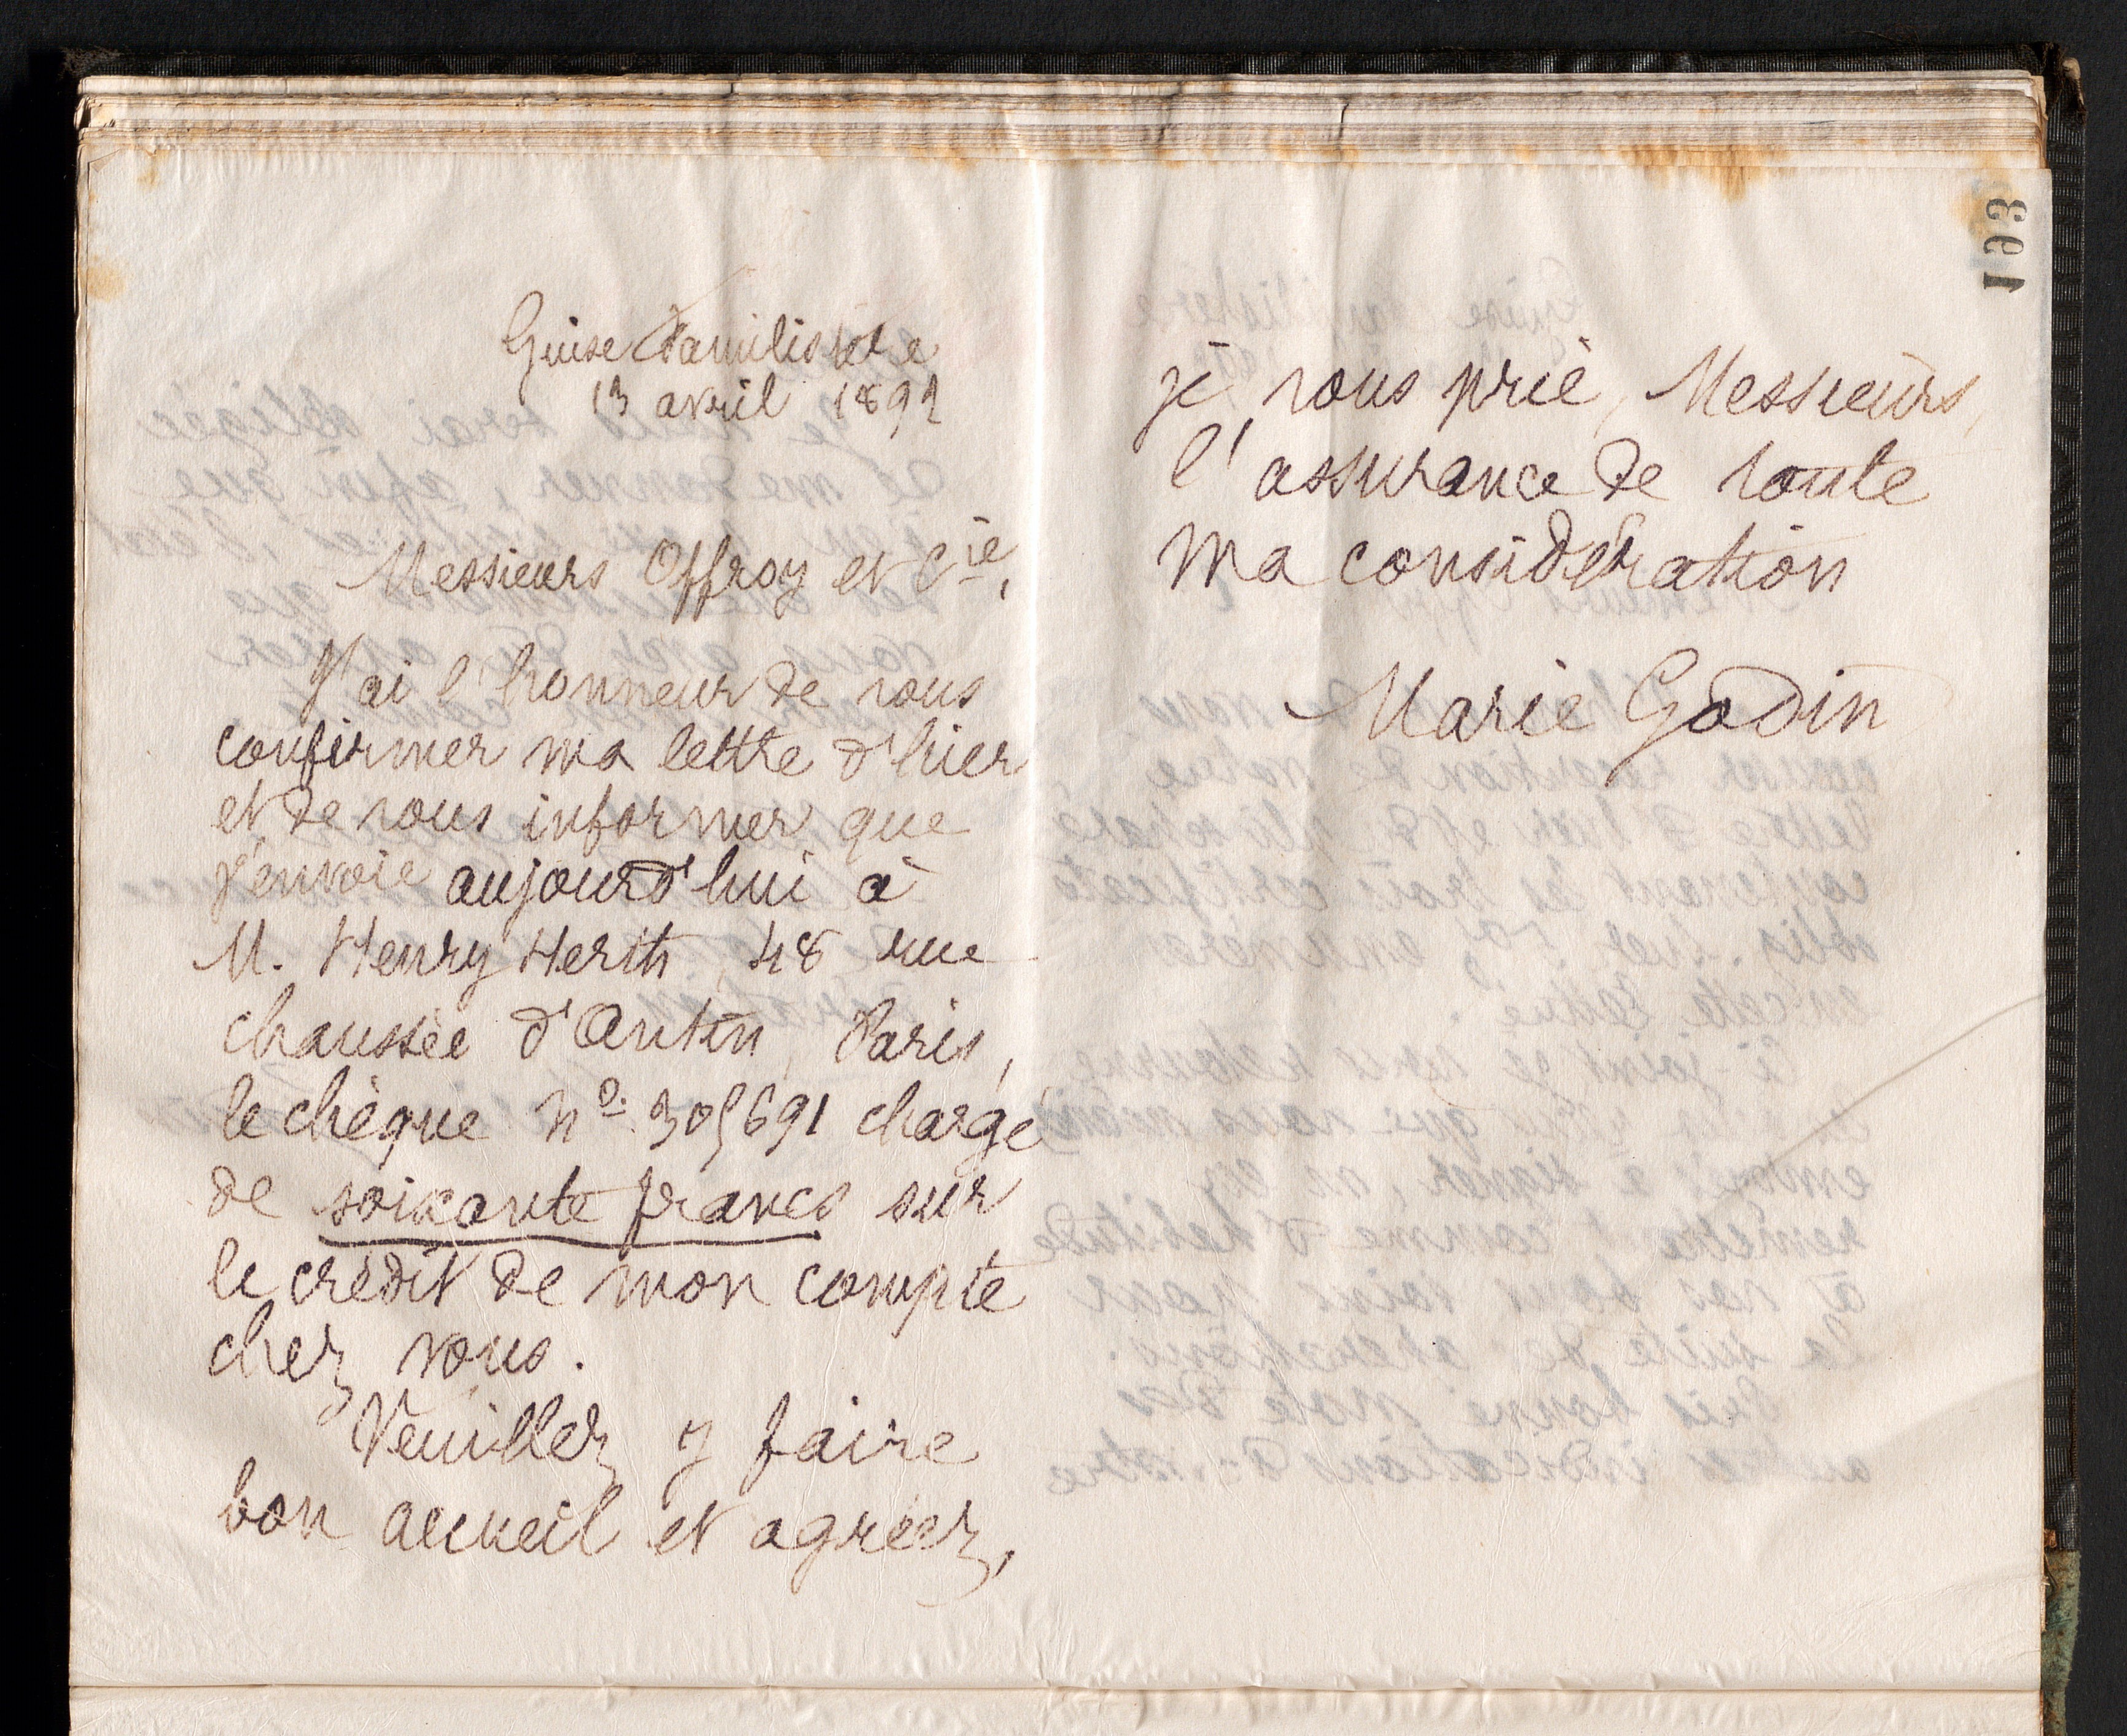 Guise Familistère
13 avril 1892
Messieurs Offroy et Cie,
J'ai l'honneur de vous
confirmer ma lettre d'hier
et de vous informer que
j'envoie aujourd'hui à
M. Henry Herth 48 rue
chaussée d'Antin, Paris,
le chèque No. 305691 chargé
de soixante francs sur
le crédit de mon compte
chez vous.
Veuillez y faire
bon accueil et agréez,
je vous prie, Messieurs,
l'assurance de toute
ma considération
Marie Godin
193